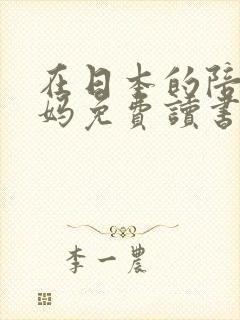 在日本的陪
妈免費讀書
李一農